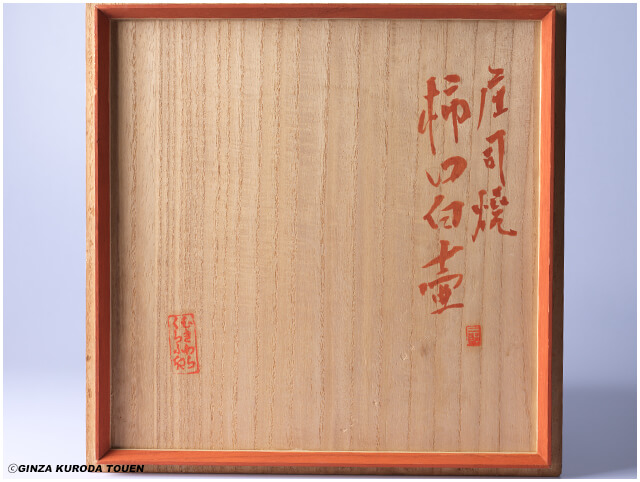 庄司燒
柿口白壷
©GINZA KURODA TOUEN